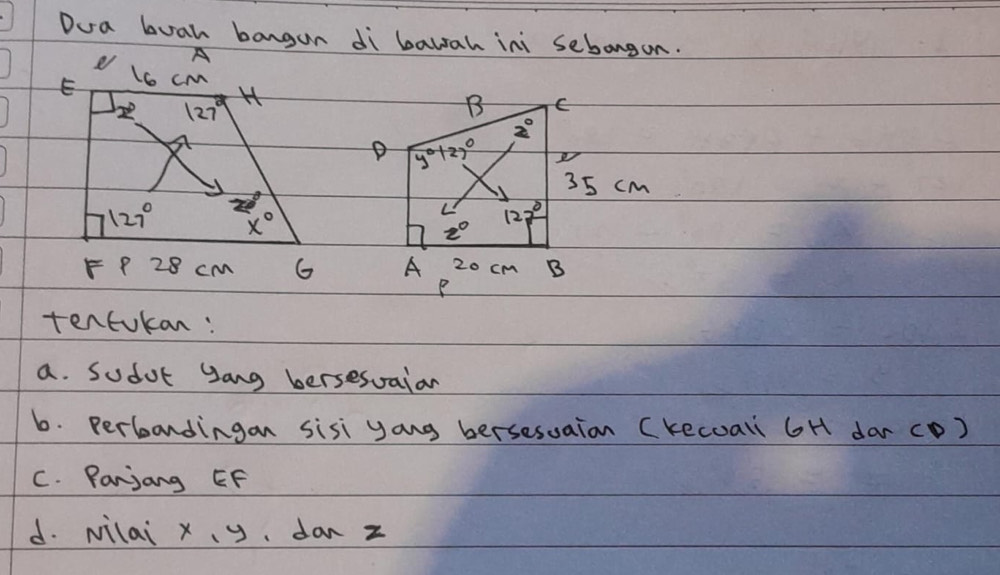 Dua buah bangun di bawah ini sebangun.
A
16 cm
E H
z° 127°
127° z° x°
F P 28 cm G
B C
D z°
y°127°
35 cm
127°
z°
A 20 cm B
P
tentukan :
a. Sudut yang bersesuaian
b. Perbandingan sisi yang bersesuaian (kecuali GH dan CD)
c. Panjang EF
d. Nilai x, y, dan z